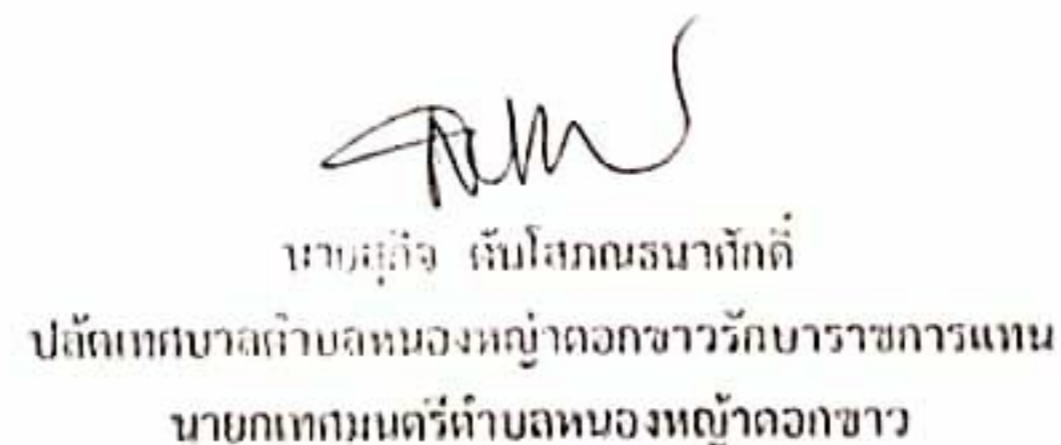 นายสุกิจ ตันโสภณธนาศักดิ์
ปลัดเทศบาลตำบลหนองหญ้าดอกขาวรักษาราชการแทน
นายกเทศมนตรีตำบลหนองหญ้าดอกขาว